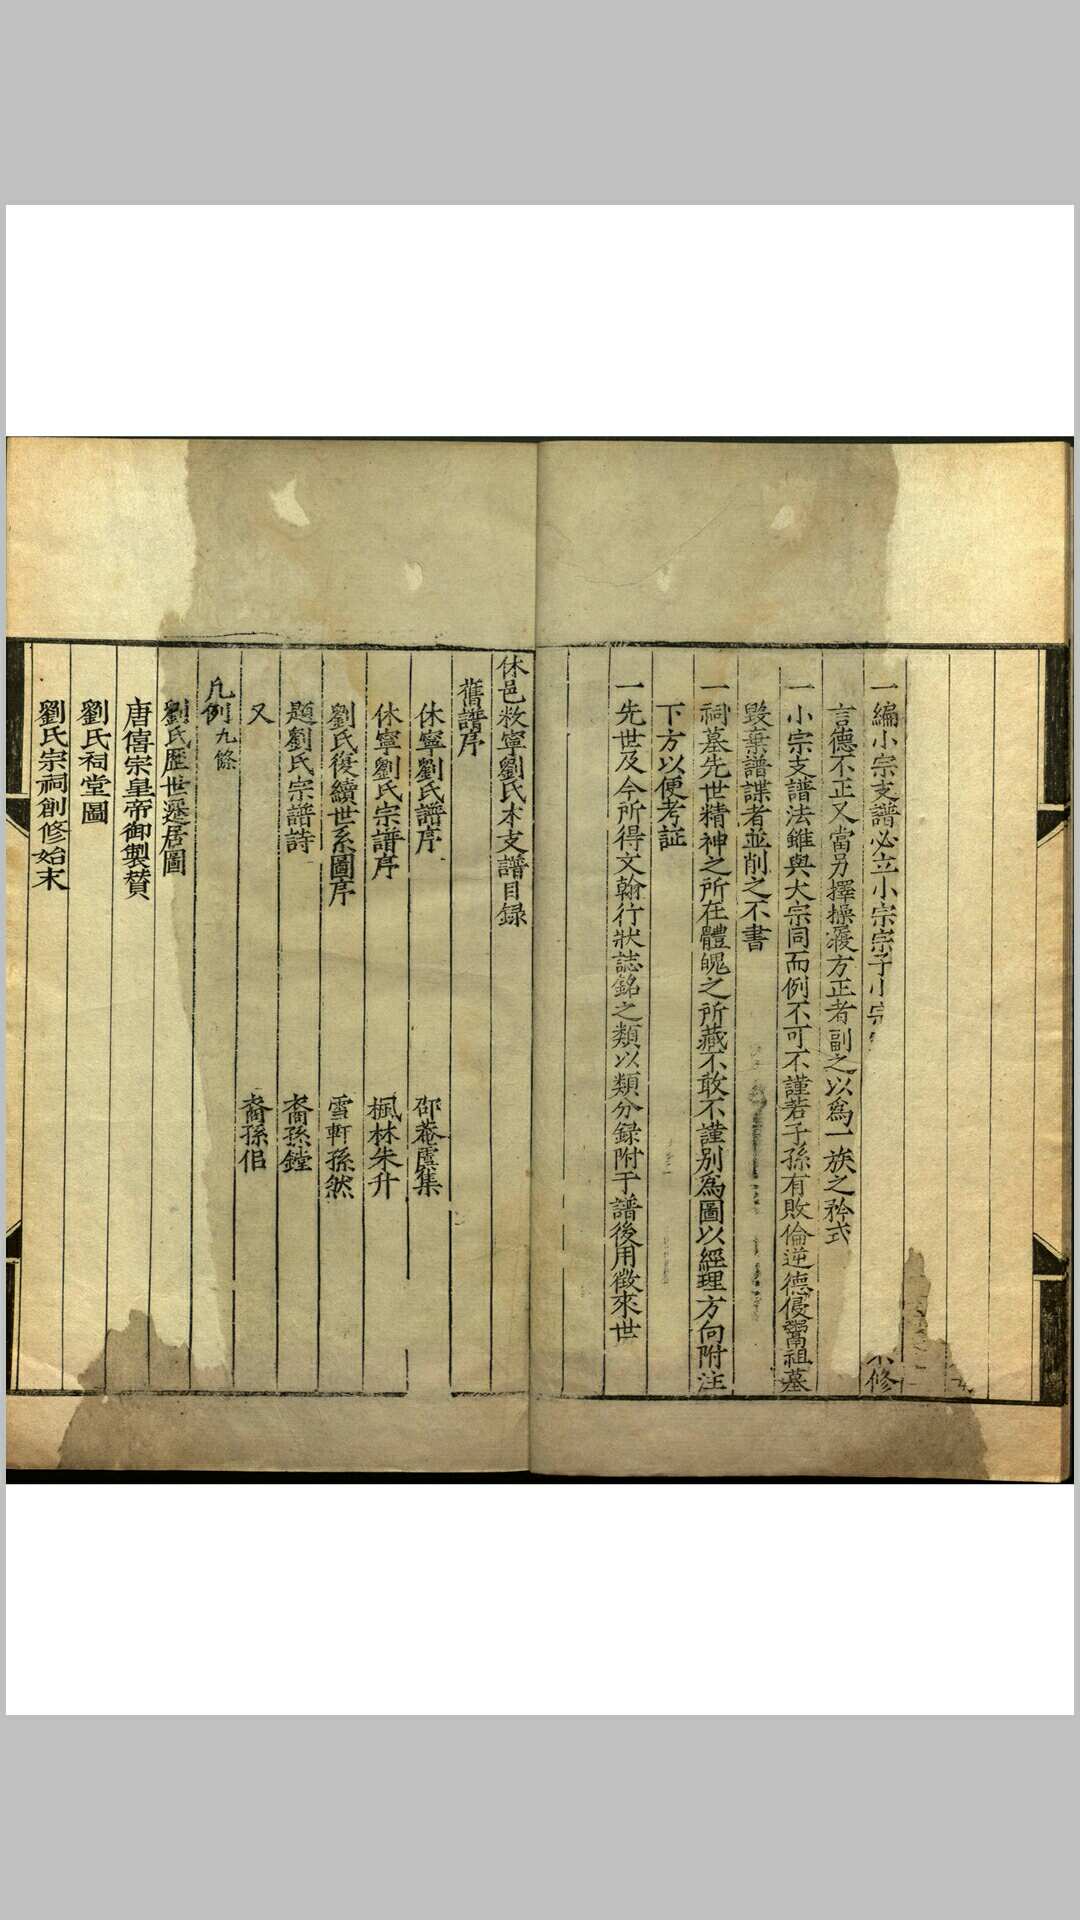 一編小宗支譜必立小宗宗子小宗
修
言德不正又當另擇操履方正者副之以爲一族之矜式
一小宗支譜法雖與大宗同而例不可不謹若子孫有敗倫逆德侵鬻祖墓
毀棄譜諜者並削之不書
一祠墓先世精神之所在體魄之所藏不敢不謹別爲圖以經理方向附注
下方以便考証
一先世及今所得文翰行狀誌銘之類以類分録附于譜後用徵來世
休邑敉寧劉氏本支譜目録
舊譜序
休寧劉氏譜序 邵菴虞集
休寧劉氏宗譜序 楓林朱升
劉氏復續世系圖序 雪軒孫然
題劉氏宗譜詩 裔孫鏜
又 裔孫佀
凡例九條
劉氏歷世遷居圖
唐僖宗皇帝御製贊
劉氏祠堂圖
劉氏宗祠創修始末